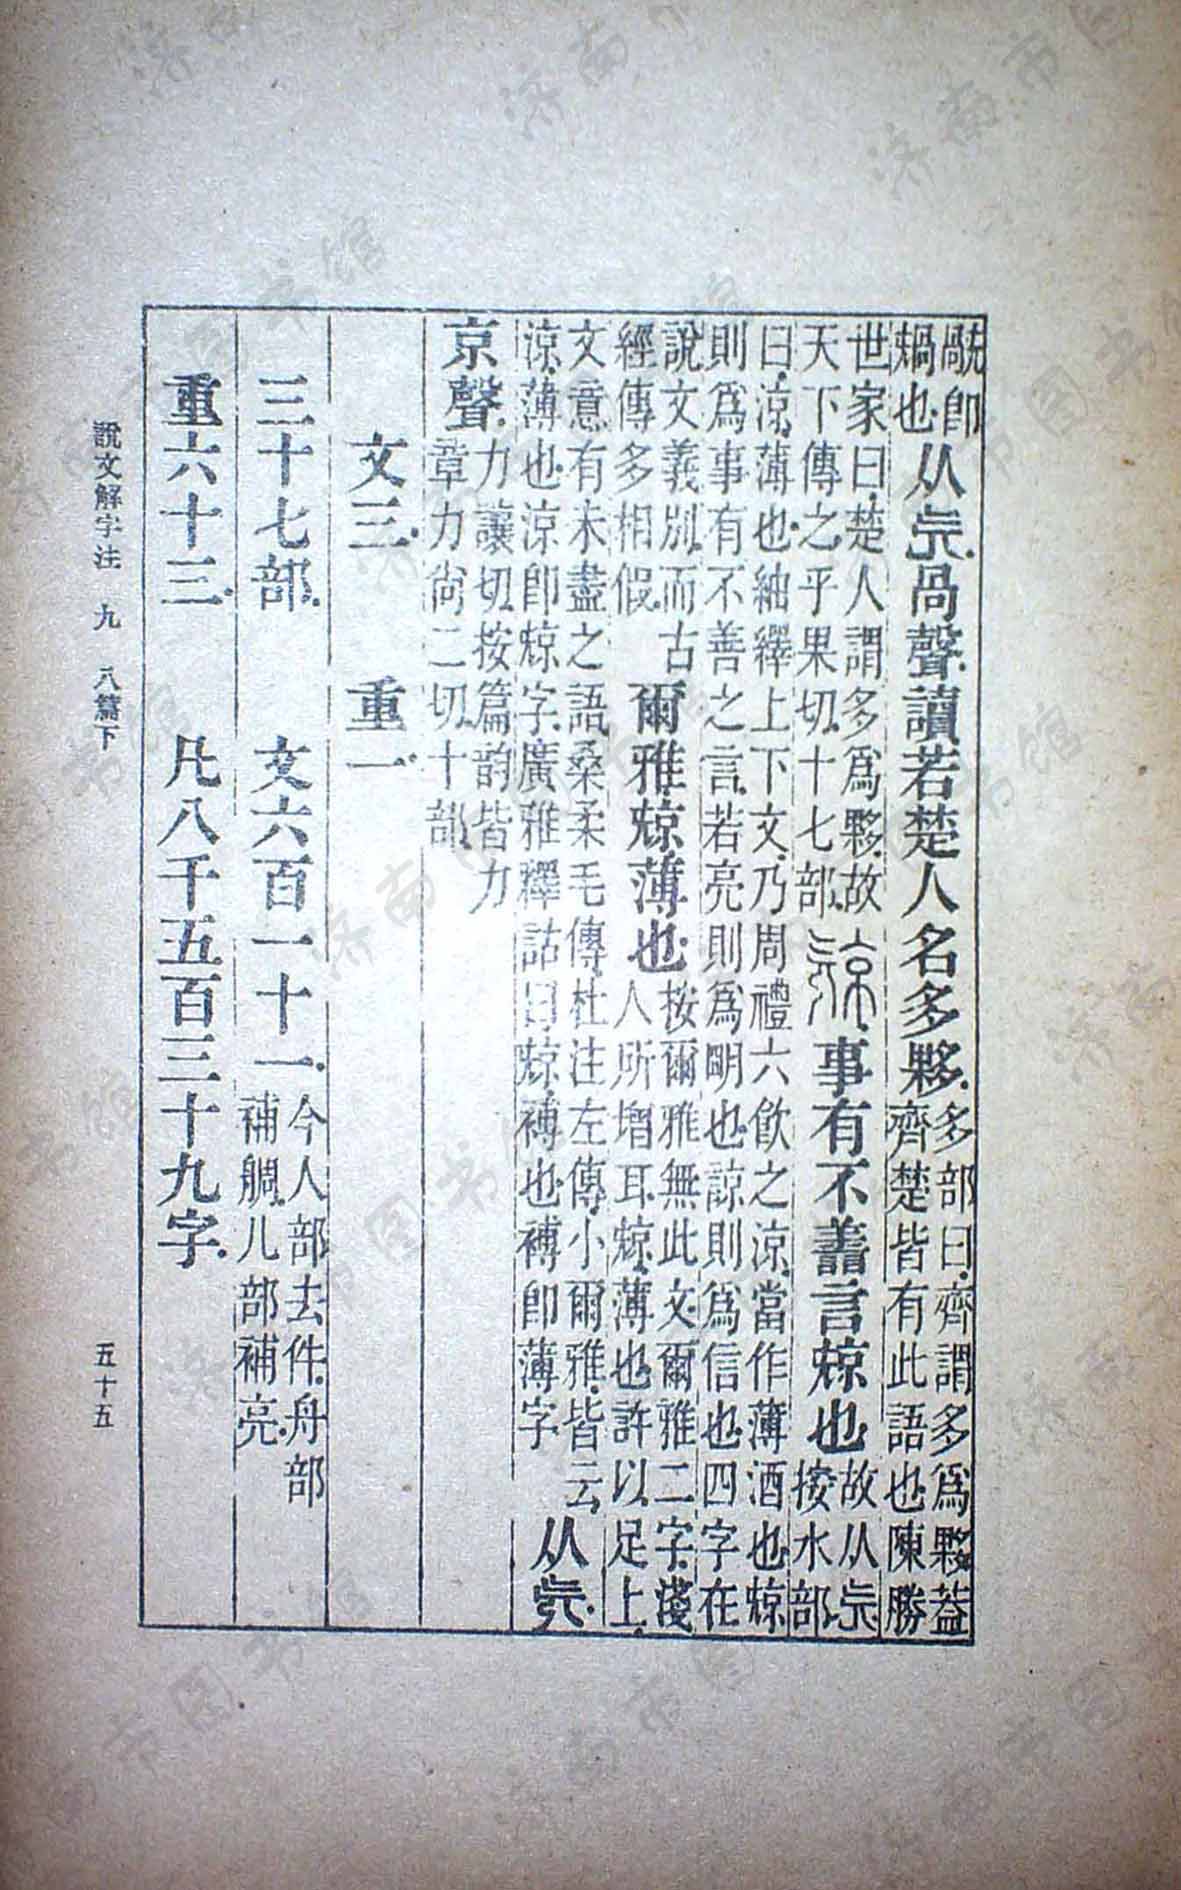 卽也从旡。咼聲。讀若楚人名多夥。多部曰。齊謂多爲夥。葢齊楚皆有此語也。陳勝
世家曰。楚人謂多爲夥。故天下傳之。乎果切。十七部。𣄴。事有不善言𣄴也。故从旡。按水部
曰。涼。薄也。紬繹上下文。乃周禮六飮之涼。當作薄酒也。𣄴則爲事有不善之言。若亮則爲明也。諒則爲信也。四字在
說文義別。而古經傳多相假。爾雅。𣄴。薄也。按爾雅無此文。爾雅二字。淺人所增耳。𣄴。薄也。許以足上
文意有未盡之語。桑柔毛傳。杜注左傳。小爾雅。皆云。涼。薄也。涼卽𣄴字。廣雅釋詁曰。𣄴。䙏也。䙏卽薄字。从旡。
京聲。力讓切。按篇韵皆力章力尙二切。十部。
文三。重一。
三十七部。文六百一十一。今人部去件。舟部補鵃。儿部補亮。
重六十三。凡八千五百三十九字。
說文解字注 九 八篇下 五十五
济南市图书馆